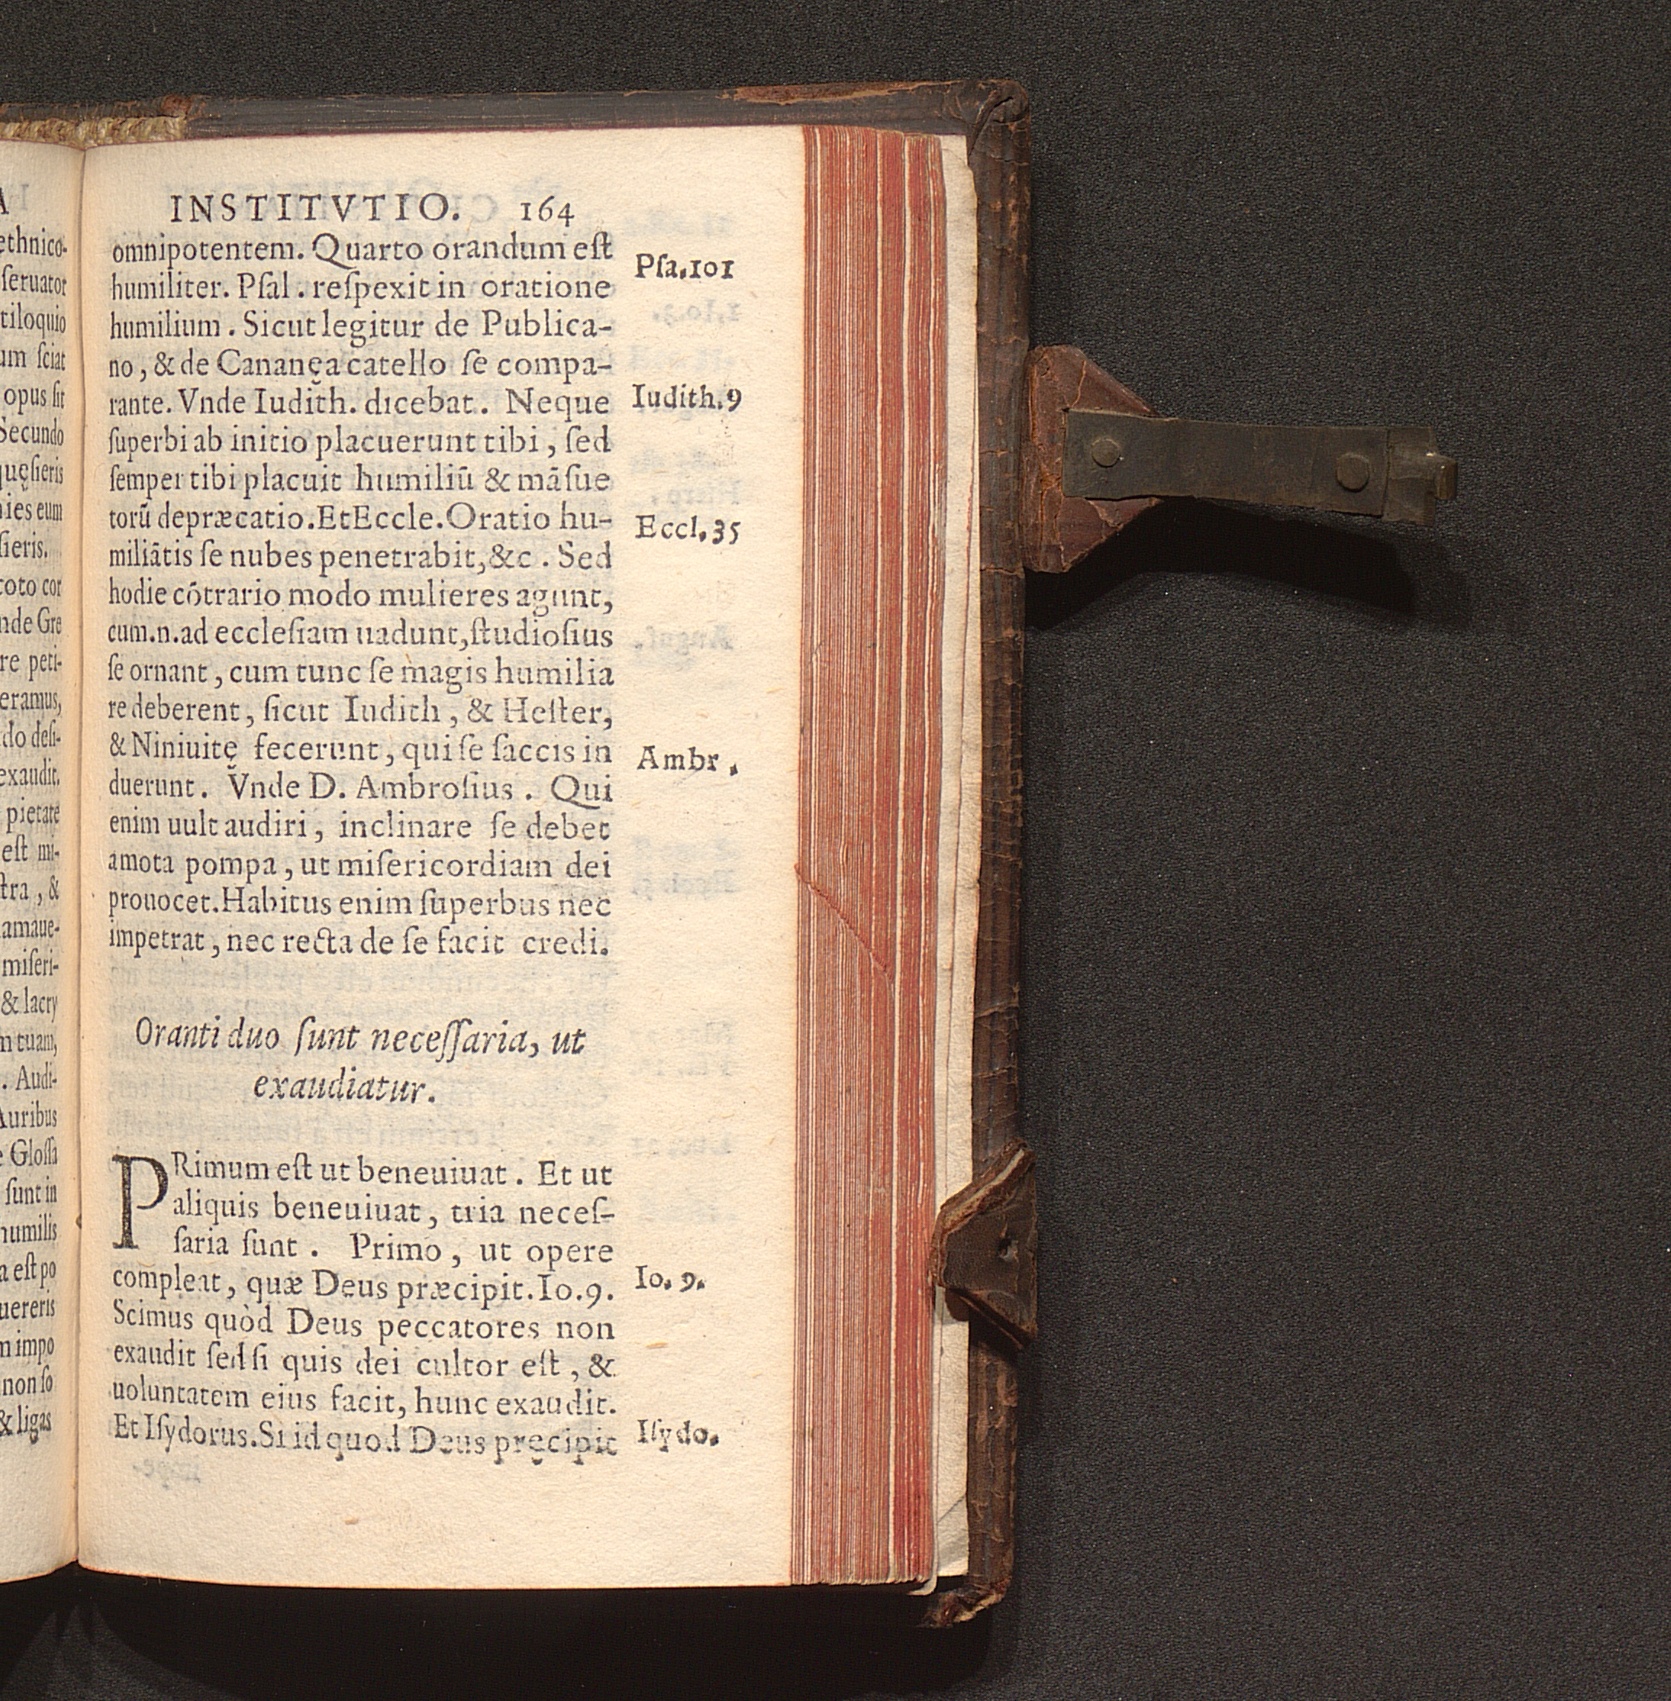 INSTITVTIO. 164
omnipotentem. Quarto orandum eſt
humiliter. Pſal. reſpexit in oratione
humilium. Sicut legitur de Publica-
no, & de Cananęa catello ſe compa-
rante. Vnde Iudith. dicebat. Neque
ſuperbi ab initio placuerunt tibi, ſed
ſemper tibi placuit humiliū & māſue
torū depræcatio. Et Eccle. Oratio hu-
miliātis ſe nubes penetrabit, &c. Sed
hodie cōtrario modo mulieres agunt,
cum.n.ad eccleſiam uadunt, ſtudioſius
ſe ornant, cum tunc ſe magis humilia
re deberent, ſicut Iudith, & Heſter,
& Niniuitę fecerunt, qui ſe ſaccis in
duerunt. Vnde D. Ambroſius. Qui
enim uult audiri, inclinare ſe debet
amota pompa, ut miſericordiam dei
prouocet. Habitus enim ſuperbus nec
impetrat, nec recta de ſe facit credi.
Oranti duo ſunt neceſſaria, ut
exaudiatur.
PRimum eſt ut beneuiuat. Et ut
aliquis beneuiuat, tria neceſ-
ſaria ſunt. Primo, ut opere
compleat, quæ Deus præcipit. Io.9.
Scimus quòd Deus peccatores non
exaudit ſed ſi quis dei cultor eſt, &
uoluntatem eius facit, hunc exaudit.
Et Iſydorus. Si id quod Deus pręcipit
Pſa.101
Iudith.9
Eccl.35
Ambr.
Io. 9.
Iſydo.
ethnico-
ſeruator
tiloquio
um ſciat
opus ſit
Secundo
quęſieris
nies eum
ſieris.
toto cor
nde Gre
re peti-
eramus,
do deſi-
exaudit.
pietate
eſt mi-
ſtra, &
amaue-
miſeri-
& lacry
m tuam,
. Audi-
Auribus
e Gloſſa
ſunt in
humilis
a eſt po
uereris
m impo
non ſo
& ligas